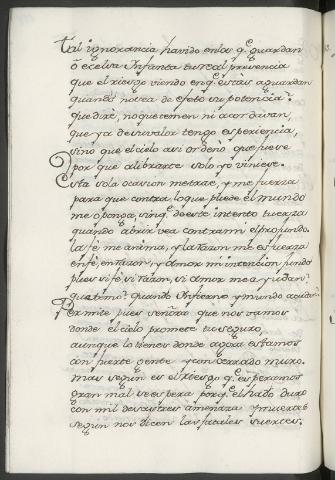 Tal ignorancia havido en los q̃ guardan
ô ecelsa Infanta tu real presencia
que el riesgo viendo en q̃ estàis aguardan
quando no sea de efeto su potencia?
que dirè, no que temen ni acordavan,
que ya de su valor tengo esperiencia,
sino que el cielo asi ordenò que fuese
por que alibrarte solo yo viniese.
Esta sola ocasion me trae, y me fuerza
para que contra lo que puede el mundo
me oponga, sin q̃ de este intento tuerza
quando abrir vea contra mi el profundo.
la fè me anima, y la razon me esfuerza
en fè, en razon, y Amor mi intencion fundo
pues si fè, si razon, si Amor me ayudan
que temo? quando Infierno y mundo acudan?
Permite pues señora que nos vamos
donde el cielo promete tu seguro,
aunque lo tienes donde agora estamos
con fuerte gente y con cerrado muro.
mas segun es el riesgo q̃ esperamos
gran mal se espera porq̃ el hado duro
con mil desastres amenaza y muertes
segun nos dicen las fatales suertes.